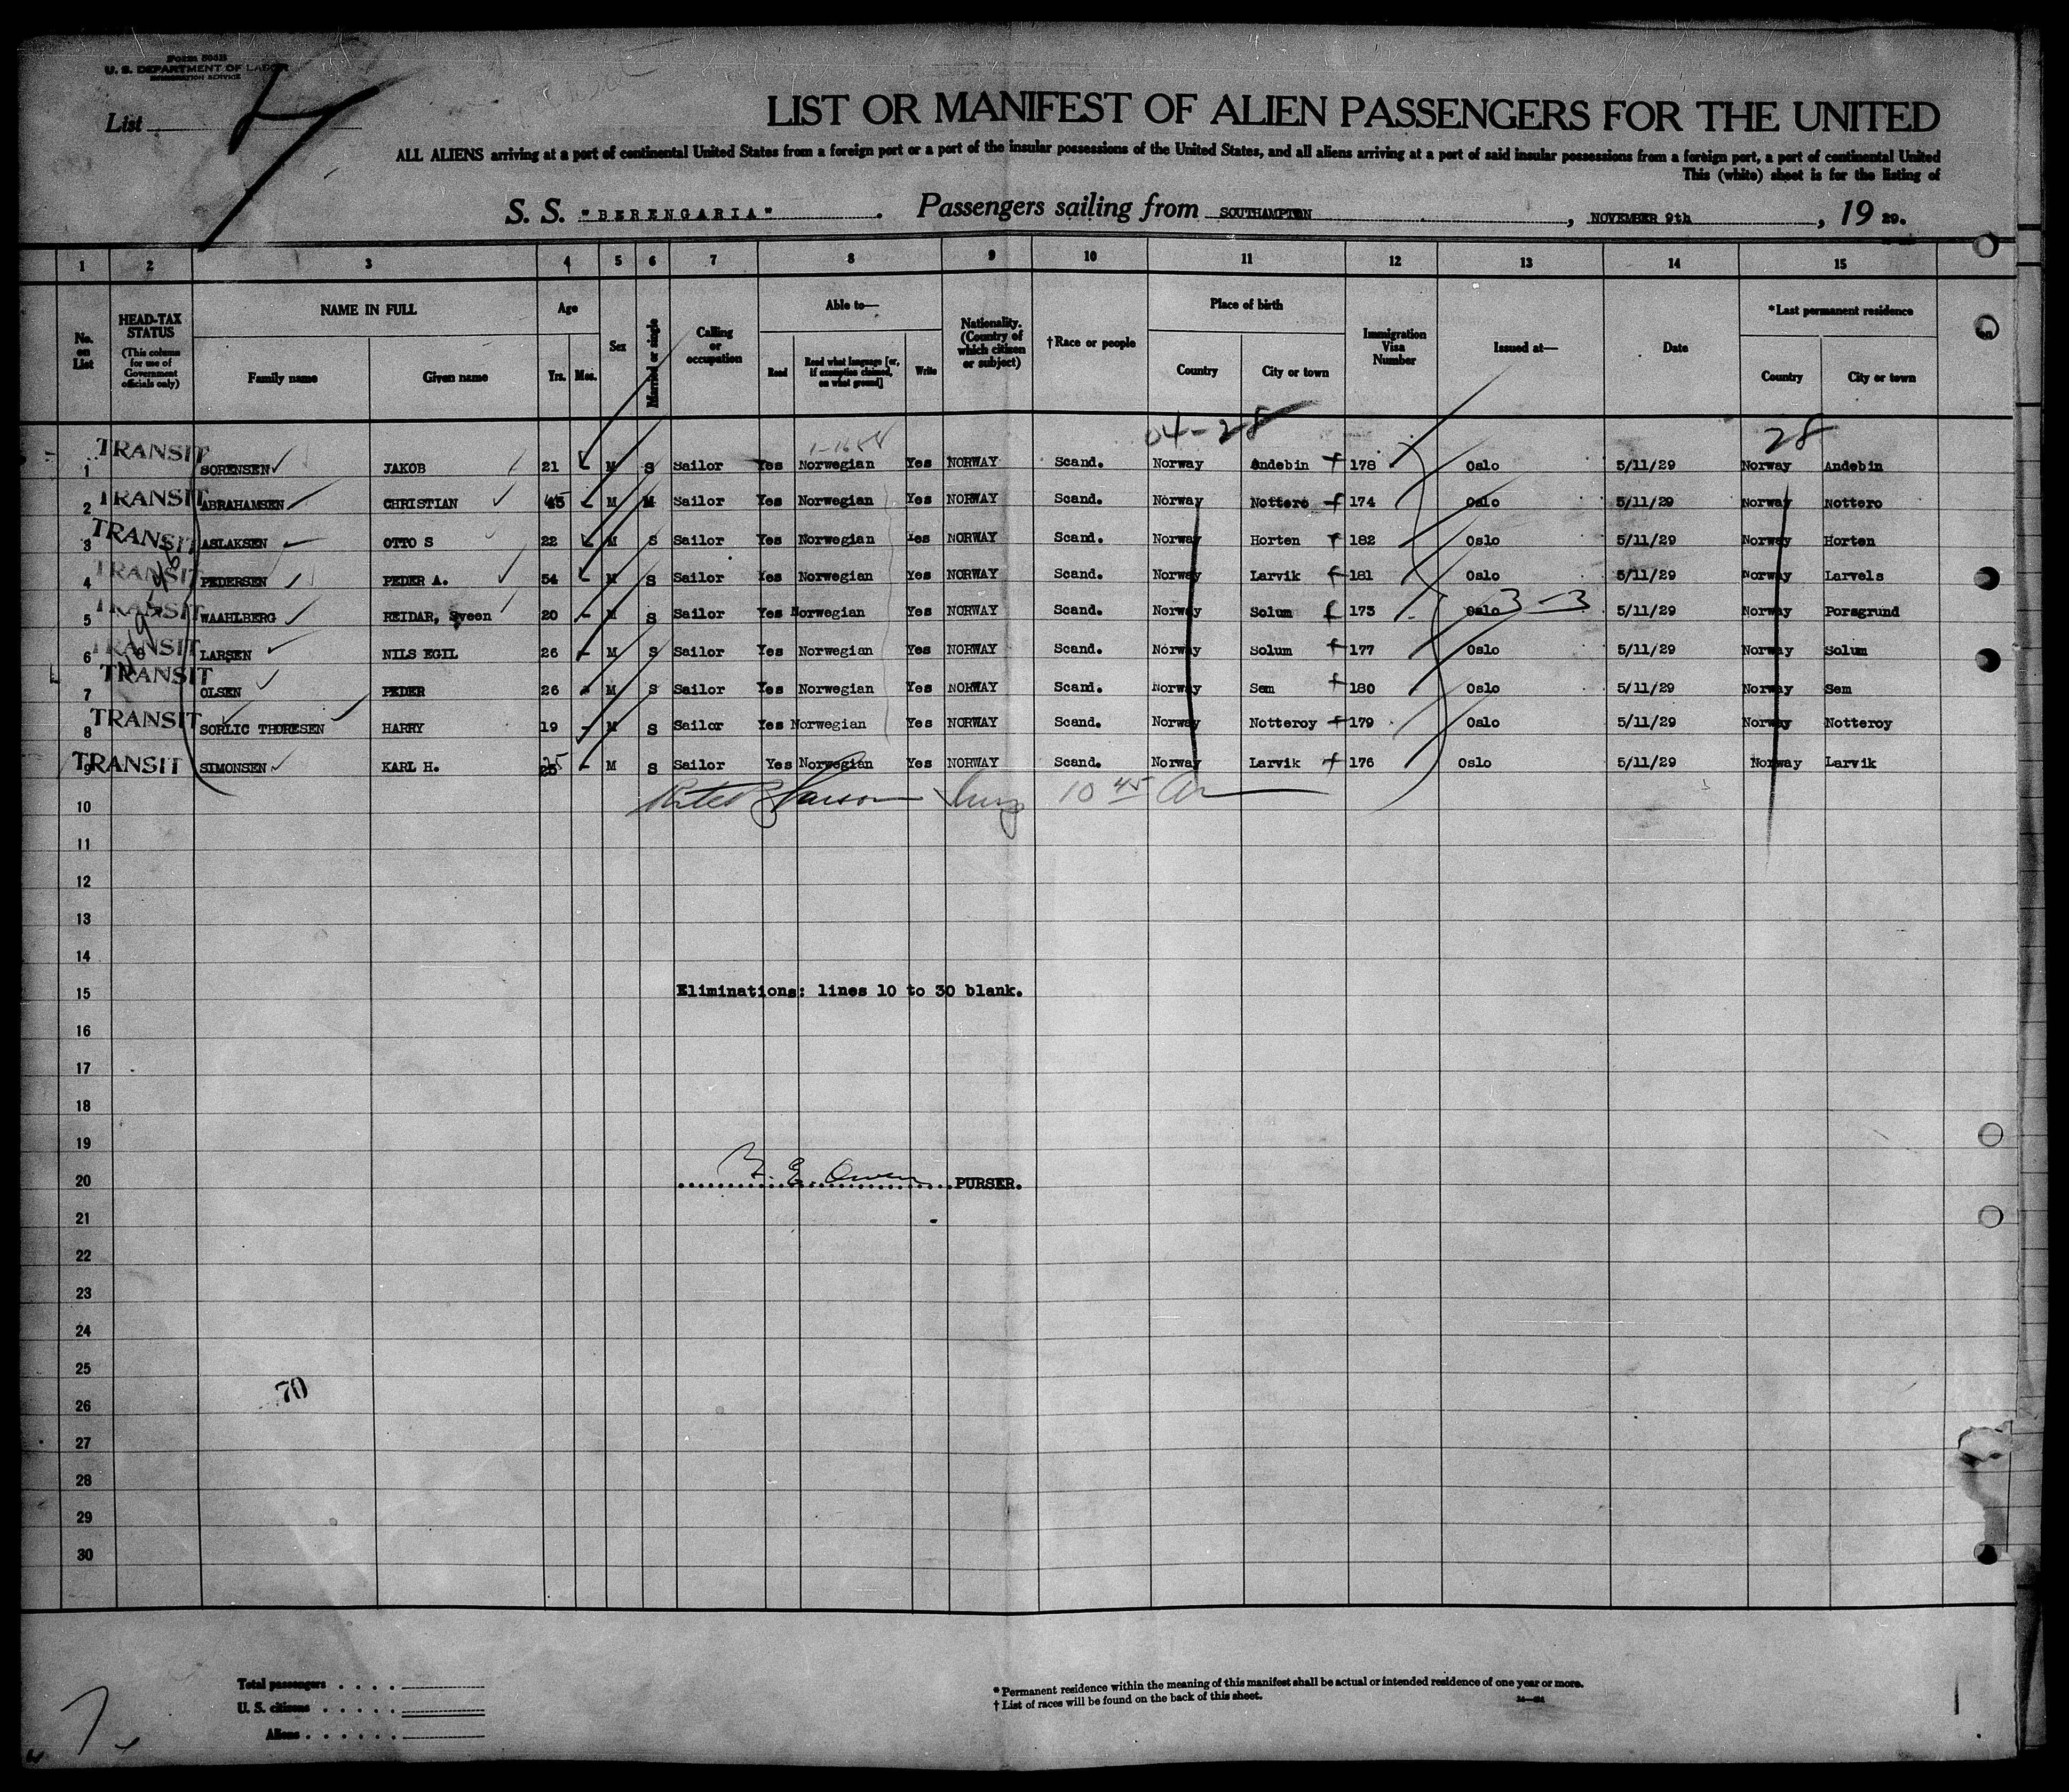 Form 500B
U. S. DEPARTMENT OF LABOR
IMMIGRATION SERVICE
List 7
LIST OR MANIFEST OF ALIEN PASSENGERS FOR THE UNITED
ALL ALIENS arriving at a port of continental United States from a foreign port or a port of the insular possessions of the United States, and all aliens arriving at a port of said insular possessions from a foreign port, a port of continental United
This (white) sheet is for the listing of
S. S. "BERENGARIA". Passengers sailing from SOUTHAMPTON, NOVEMBER 9th, 19 29.
1 2 3 4 5 6 7 8 9 10 11 12 13 14 15
No. on List
HEAD-TAX STATUS (This column for use of Government officials only)
NAME IN FULL
Family name Given name
Age
Yrs. Mos.
Sex
Married or single
Calling or occupation
Able to—
Read Read what language [or, if exemption claimed, on what ground] Write
Nationality. (Country of which citizen or subject)
†Race or people
Place of birth
Country City or town
Immigration Visa Number
Issued at—
Date
*Last permanent residence
Country City or town
04-28 28
1 TRANSIT SORENSEN JAKOB 21 M S Sailor Yes Norwegian Yes NORWAY Scand. Norway Andebin 178 Oslo 5/11/29 Norway Andebin
2 TRANSIT ABRAHAMSEN CHRISTIAN 45 M M Sailor Yes Norwegian Yes NORWAY Scand. Norway Nottero 174 Oslo 5/11/29 Norway Nottero
3 TRANSIT ASLAKSEN OTTO S 22 M S Sailor Yes Norwegian Yes NORWAY Scand. Norway Horten 182 Oslo 5/11/29 Norway Horten
4 TRANSIT PEDERSEN PEDER A. 54 M S Sailor Yes Norwegian Yes NORWAY Scand. Norway Larvik 181 Oslo 5/11/29 Norway Larvels
5 TRANSIT WAAHLBERG REIDAR, Sveen 20 - M S Sailor Yes Norwegian Yes NORWAY Scand. Norway Solum 173 Oslo 3-3 5/11/29 Norway Porsgrund
6 TRANSIT LARSEN NILS EGIL 26 - M S Sailor Yes Norwegian Yes NORWAY Scand. Norway Solum 177 Oslo 5/11/29 Norway Solum
7 TRANSIT OLSEN PEDER 26 - M S Sailor Yes Norwegian Yes NORWAY Scand. Norway Sem 180 Oslo 5/11/29 Norway Sem
8 TRANSIT SORLIC THORESEN HARRY 19 - M S Sailor Yes Norwegian Yes NORWAY Scand. Norway Notteroy 179 Oslo 5/11/29 Norway Notteroy
9 TRANSIT SIMONSEN KARL H. 25 - M S Sailor Yes Norwegian Yes NORWAY Scand. Norway Larvik 176 Oslo 5/11/29 Norway Larvik
10 10 45
11
12
13
14
15 Eliminations: lines 10 to 30 blank.
16
17
18
19
20 Owen PURSER.
21
22
23
24
25
70
26
27
28
29
30
Total passengers
U. S. citizens
Aliens
* Permanent residence within the meaning of this manifest shall be actual or intended residence of one year or more.
† List of races will be found on the back of this sheet.